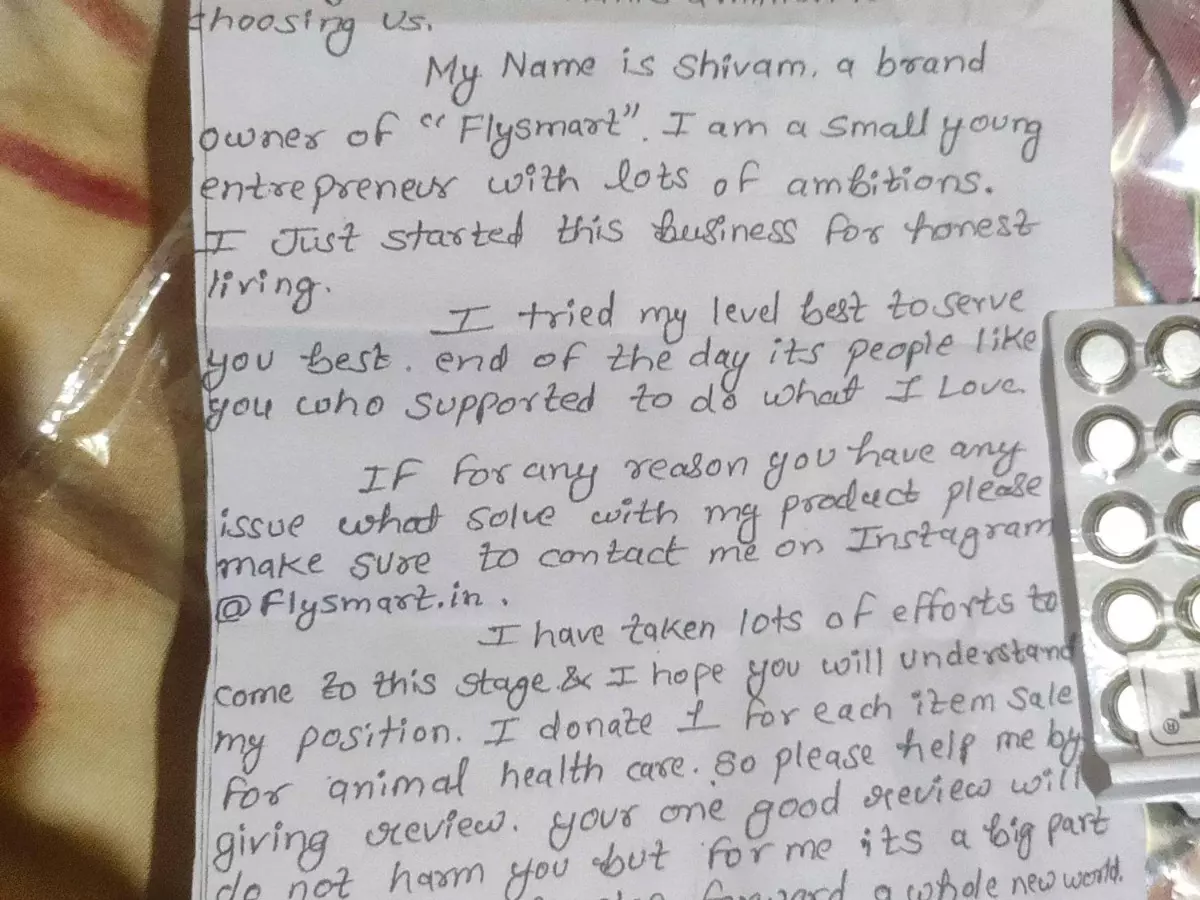 choosing us.
My Name is Shivam, a brand
owner of "Flysmart". I am a small young
entrepreneur with lots of ambitions.
I Just started this business for honest
living.
I tried my level best to serve
you best. end of the day its people like
you who supported to do what I Love.
If for any reason you have any
issue what solve with my product please
make sure to contact me on Instagram
@flysmart.in.
I have taken lots of efforts to
come to this stage & I hope you will understand
my position. I donate 1 for each item sale
for animal health care. So please help me by
giving review. your one good review will
do not harm you but for me its a big part
forward a whole new world.